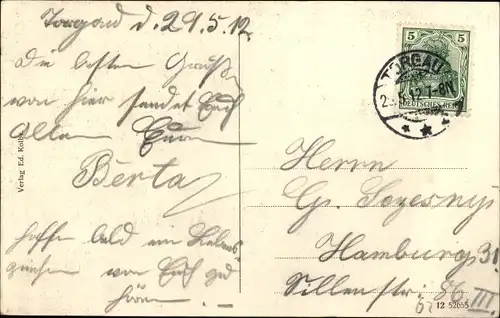 Torgau d. 29.5.12.
Die besten Grüße
von hier sendet Euch
allen Eure
Berta
hoffe bald ein Lebens
zeichen von Euch zu
hören.
Verlag Ed.
5 5
DEUTSCHES REICH
TORGAU
5.12.7-8N
Herrn
Hamburg 31
Sillemstr. 86 III
12 52655